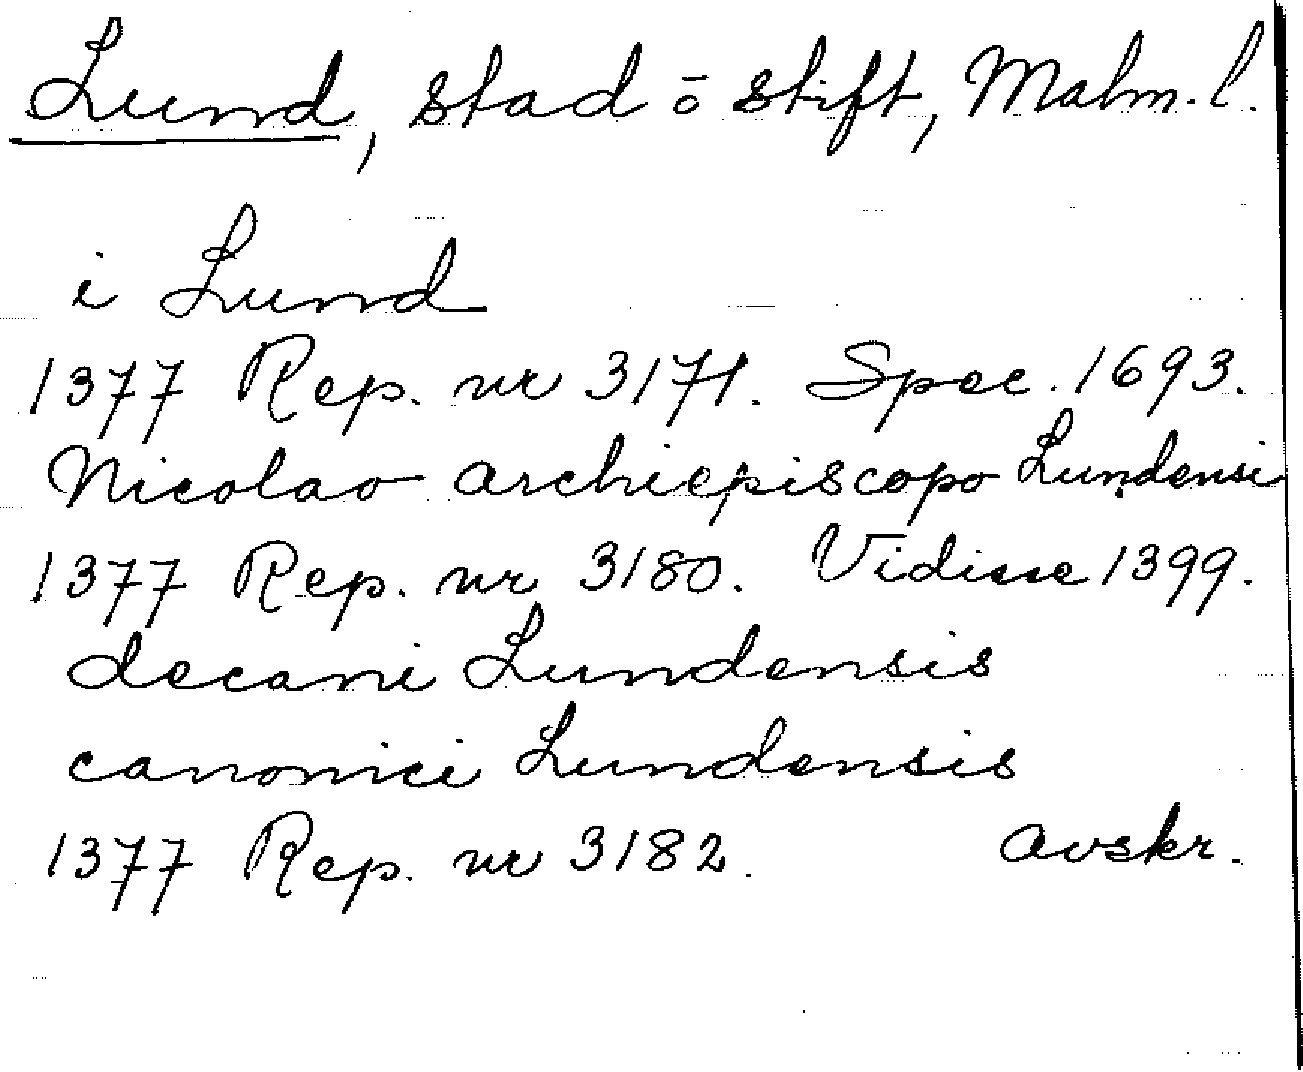 Lund, stad o stift, Malm. l.
i Lund
1377 Rep. nr 3171. Spec. 1693.
Nicolao archiepiscopo Lundensi
1377 Rep. nr 3180. Vidisse 1399.
decani Lundensis
canonici Lundensis
1377 Rep. nr 3182. avskr.